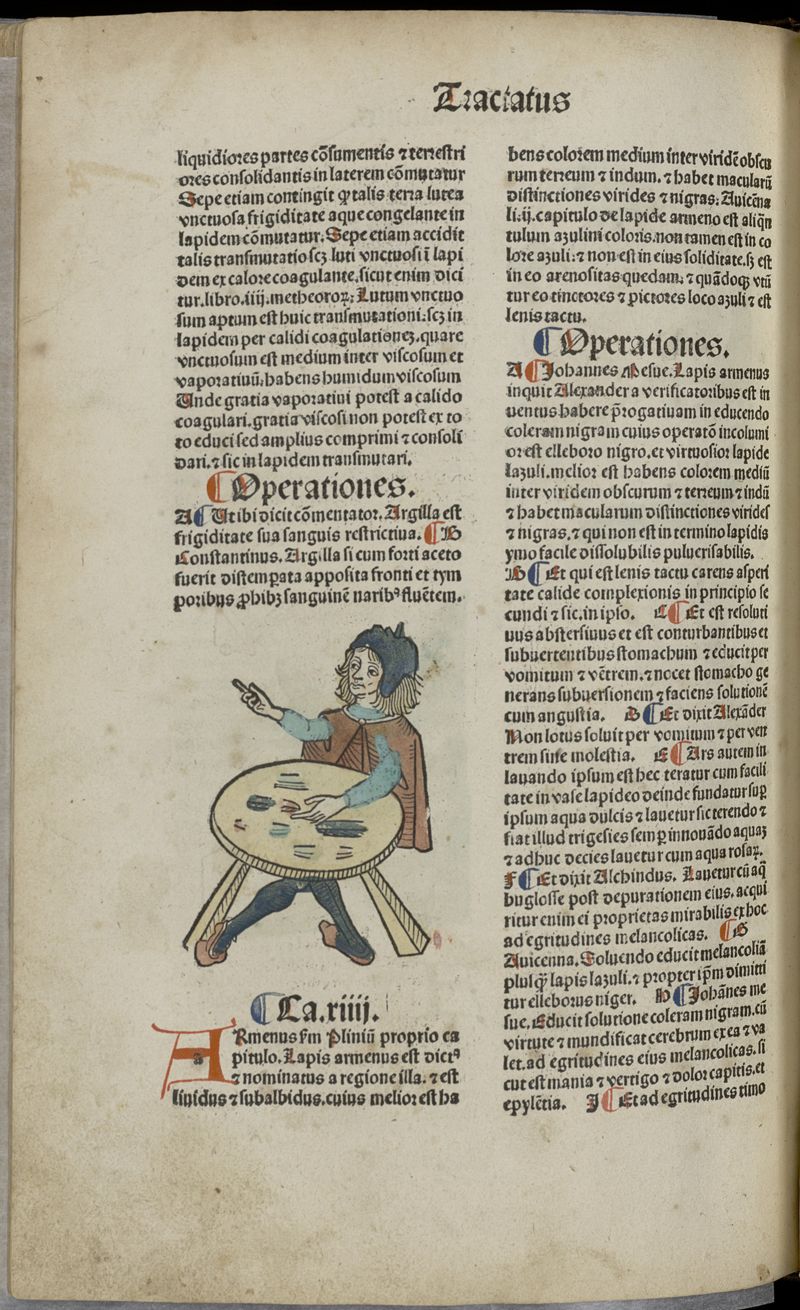 Tractatus
liquidiores partes cõsumentis ⁊ terrestri
ores consolidantis in laterem cõmutatur
Sepe etiam contingit ꝙ talis terra lutea
vnctuosa frigiditate aque congelante in
lapidem cõmutatur. Sepe etiam accidit
talis transmutatio scꝫ luti vnctuosi ĩ lapi
dem ex calore coagulante. sicut enim dici
tur. libro. iiij. metheoroꝝ: Lutum vnctuo
sum aptum est huic transmutationi: scꝫ in
lapidem per calidi coagulationeꝫ. quare
vnctuosum est medium inter viscosum et
vaporatiuũ: habens humidum viscosum
Unde gratia vaporatiui potest a calido
coagulari. gratia viscosi non potest ex to
to educi sed amplius comprimi ⁊ consoli
dari. ⁊ sic in lapidem transmutari.
¶ Operationes.
A ¶ Ut ibi dicit cõmentator. Argilla est
frigiditate sua sanguis restrictiua. ¶ B
Constantinus. Argilla si cum forti aceto
fuerit distemperata apposita fronti et tym
poribus ꝓhibꝫ sanguinẽ naribꝰ fluẽtem.
¶ Ca. xiiij.
Armenus s̃m Pliniũ proprio ca
pitulo. Lapis armenus est dictꝰ
⁊ nominatus a regione illa. ⁊ est
liuidus ⁊ subalbidus. cuius melior est ha
bens colorem medium inter viridẽ obscu
rum terreum ⁊ indum. ⁊ habet macularũ
distinctiones virides ⁊ nigras: Auicẽna
li. ij. capitulo de lapide armeno est aliq̃n
tulum azulini coloris. non tamen est in co
lore azuli: ⁊ non est in eius soliditate. sꝫ est
in eo arenositas quedam: ⁊ quãdoqꝫ vtũ
tur eo tinctores ⁊ pictores loco azuli ⁊ est
lenis tactu.
¶ Operationes.
A ¶ Johannes Mesue. Lapis armenus
inquit Alexander a verificatoribus est in
uentus habere p̃rogatiuam in educendo
coleram nigram cuius operatõ incolumi
or est elleboro nigro. et virtuosior lapide
lazuli. melior est habens colorem mediũ
inter viridem obscurum ⁊ terreum ⁊ indũ
⁊ habet macularum distinctiones virides
⁊ nigras. ⁊ qui non est in termino lapidis
ymo facile dissolubilis puluerisabilis.
B ¶ Et qui est lenis tactu carens asperi
tate calide complexionis in principio se
cundi ⁊ sic. in ipso. C ¶ Et est resoluti
uus abstersiuus et est conturbantibus et
subuertentibus stomachum ⁊ educit per
vomitum ⁊ vẽtrem. ⁊ nocet stomacho ge
nerans subuersionem ⁊ faciens solutionẽ
cum angustia. D ¶ Et dixit Alexãder
Non lotus soluit per vomitum ⁊ per ven
trem sine molestia. E ¶ Ars autem in
lauando ipsum est hec teratur cum facili
tate in vase lapideo deinde fundatur sup̲
ipsum aqua dulcis ⁊ lauetur sic terendo ⁊
fiat illud trigesies semp̲ innouãdo aquaꝫ
⁊ adhuc decies lauetur cum aqua rosaꝝ.
F ¶ Et dixit Alchindus. Lauetur cũ aq̃
buglosse post depurationem eius. acqui
ritur enim ei proprietas mirabilis ex hoc
ad egritudines melancolicas. ¶ G
Auicenna. Soluendo educit melancoliã
plusq̃ lapis lazuli. ⁊ propter ip̃m dimitti
tur elleborus niger. H ¶ Johãnes me
sue. Educit solutione coleram nigram. cũ
virtute ⁊ mundificat cerebrum ex ea ⁊ va
let. ad egritudines eius melancolicas. si
cut est mania ⁊ vertigo ⁊ dolor capitis. et
epylẽtia. J ¶ Et ad egritudines timo